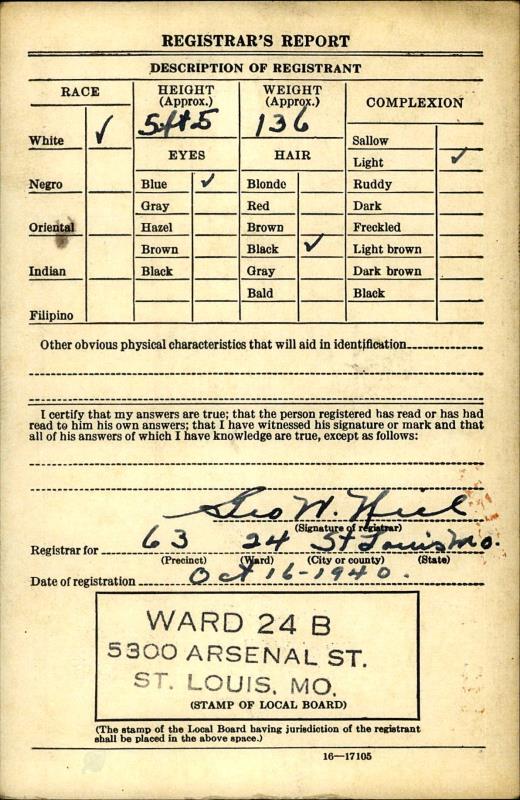 REGISTRAR'S REPORT
DESCRIPTION OF REGISTRANT
RACE
HEIGHT (Approx.)
WEIGHT (Approx.)
COMPLEXION
5 ft 5
136
White ✓
Sallow
EYES
HAIR
Light ✓
Negro
Blue ✓
Blonde
Ruddy
Gray
Red
Dark
Oriental
Hazel
Brown
Freckled
Brown
Black ✓
Light brown
Indian
Black
Gray
Dark brown
Bald
Black
Filipino
Other obvious physical characteristics that will aid in identification
I certify that my answers are true; that the person registered has read or has had
read to him his own answers; that I have witnessed his signature or mark and that
all of his answers of which I have knowledge are true, except as follows:
Geo W.
(Signature of registrar)
Registrar for 63 24 St Louis Mo.
(Precinct) (Ward) (City or county) (State)
Date of registration Oct 16-1940.
WARD 24 B
5300 ARSENAL ST.
ST. LOUIS, MO.
(STAMP OF LOCAL BOARD)
(The stamp of the Local Board having jurisdiction of the registrant
shall be placed in the above space.)
16—17105